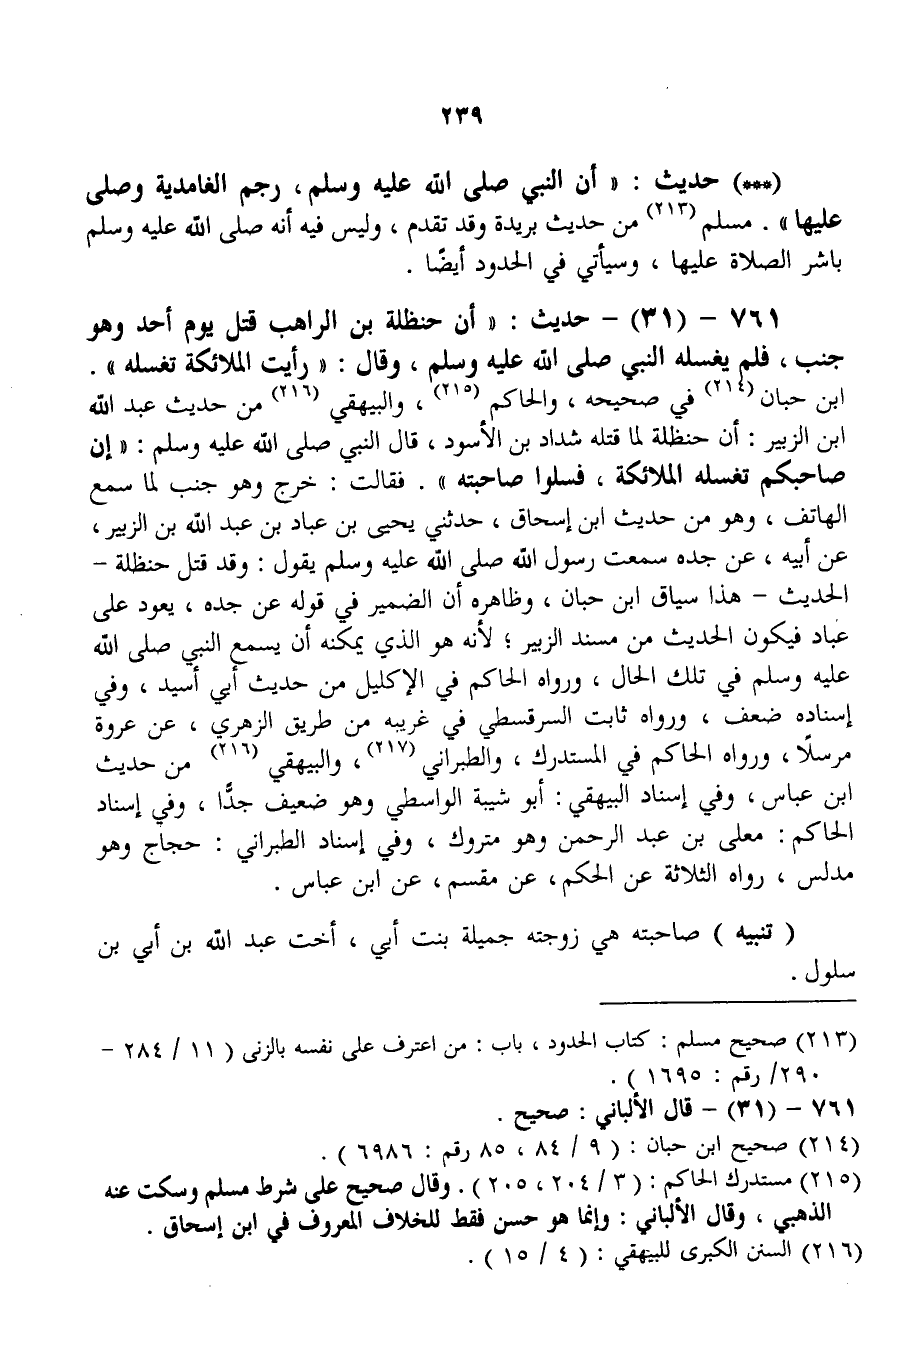 ٢٣٩
(***) حديث : « أن النبي صلى الله عليه وسلم، رجم الغامدية وصلى
عليها » . مسلم (٢١٣) من حديث بريدة وقد تقدم ، وليس فيه أنه صلى الله عليه وسلم
باشر الصلاة عليها ، وسيأتي في الحدود أيضًا .
٧٦١ – (٣١) – حديث : « أن حنظلة بن الراهب قتل يوم أحد وهو
جنب ، فلم يغسله النبي صلى الله عليه وسلم ، وقال : « رأيت الملائكة تغسله » .
ابن حبان (٢١٤) في صحيحه ، والحاكم (٢١٥) ، والبيهقي (٢١٦) من حديث عبد الله
ابن الزبير : أن حنظلة لما قتله شداد بن الأسود ، قال النبي صلى الله عليه وسلم : « إن
صاحبكم تغسله الملائكة ، فسلوا صاحبته » . فقالت : خرج وهو جنب لما سمع
الهاتف ، وهو من حديث ابن إسحاق ، حدثني يحيى بن عباد بن عبد الله بن الزبير ،
عن أبيه ، عن جده سمعت رسول الله صلى الله عليه وسلم يقول : وقد قتل حنظلة –
الحديث – هذا سياق ابن حبان ، وظاهره أن الضمير في قوله عن جده ، يعود على
عباد فيكون الحديث من مسند الزبير ؛ لأنه هو الذي يمكنه أن يسمع النبي صلى الله
عليه وسلم في تلك الحال ، ورواه الحاكم في الإكليل من حديث أبي أسيد ، وفي
إسناده ضعف ، ورواه ثابت السرقسطي في غريبه من طريق الزهري ، عن عروة
مرسلًا ، ورواه الحاكم في المستدرك ، والطبراني (٢١٧) ، والبيهقي (٢١٦) من حديث
ابن عباس ، وفي إسناد البيهقي : أبو شيبة الواسطي وهو ضعيف جدًّا ، وفي إسناد
الحاكم : معلى بن عبد الرحمن وهو متروك ، وفي إسناد الطبراني : حجاج وهو
مدلس ، رواه الثلاثة عن الحكم، عن مقسم ، عن ابن عباس .
( تنبيه ) صاحبته هي زوجته جميلة بنت أبي ، أخت عبد الله بن أبي بن
سلول .
(٢١٣) صحيح مسلم : كتاب الحدود ، باب : من اعترف على نفسه بالزنى ( ١١ / ٢٨٤ –
٢٩٠/ رقم : ١٦٩٥ ) .
٧٦١ – (٣١) – قال الألباني : صحيح .
(٢١٤) صحيح ابن حبان : ( ٩ / ٨٤ ، ٨٥ رقم : ٦٩٨٦ ) .
(٢١٥) مستدرك الحاكم : ( ٣ / ٢٠٤ ، ٢٠٥ ) . وقال صحيح على شرط مسلم وسكت عنه
الذهبي ، وقال الألباني : وإنما هو حسن فقط للخلاف المعروف في ابن إسحاق .
(٢١٦) السنن الكبرى للبيهقي : ( ٤ / ١٥ ) .